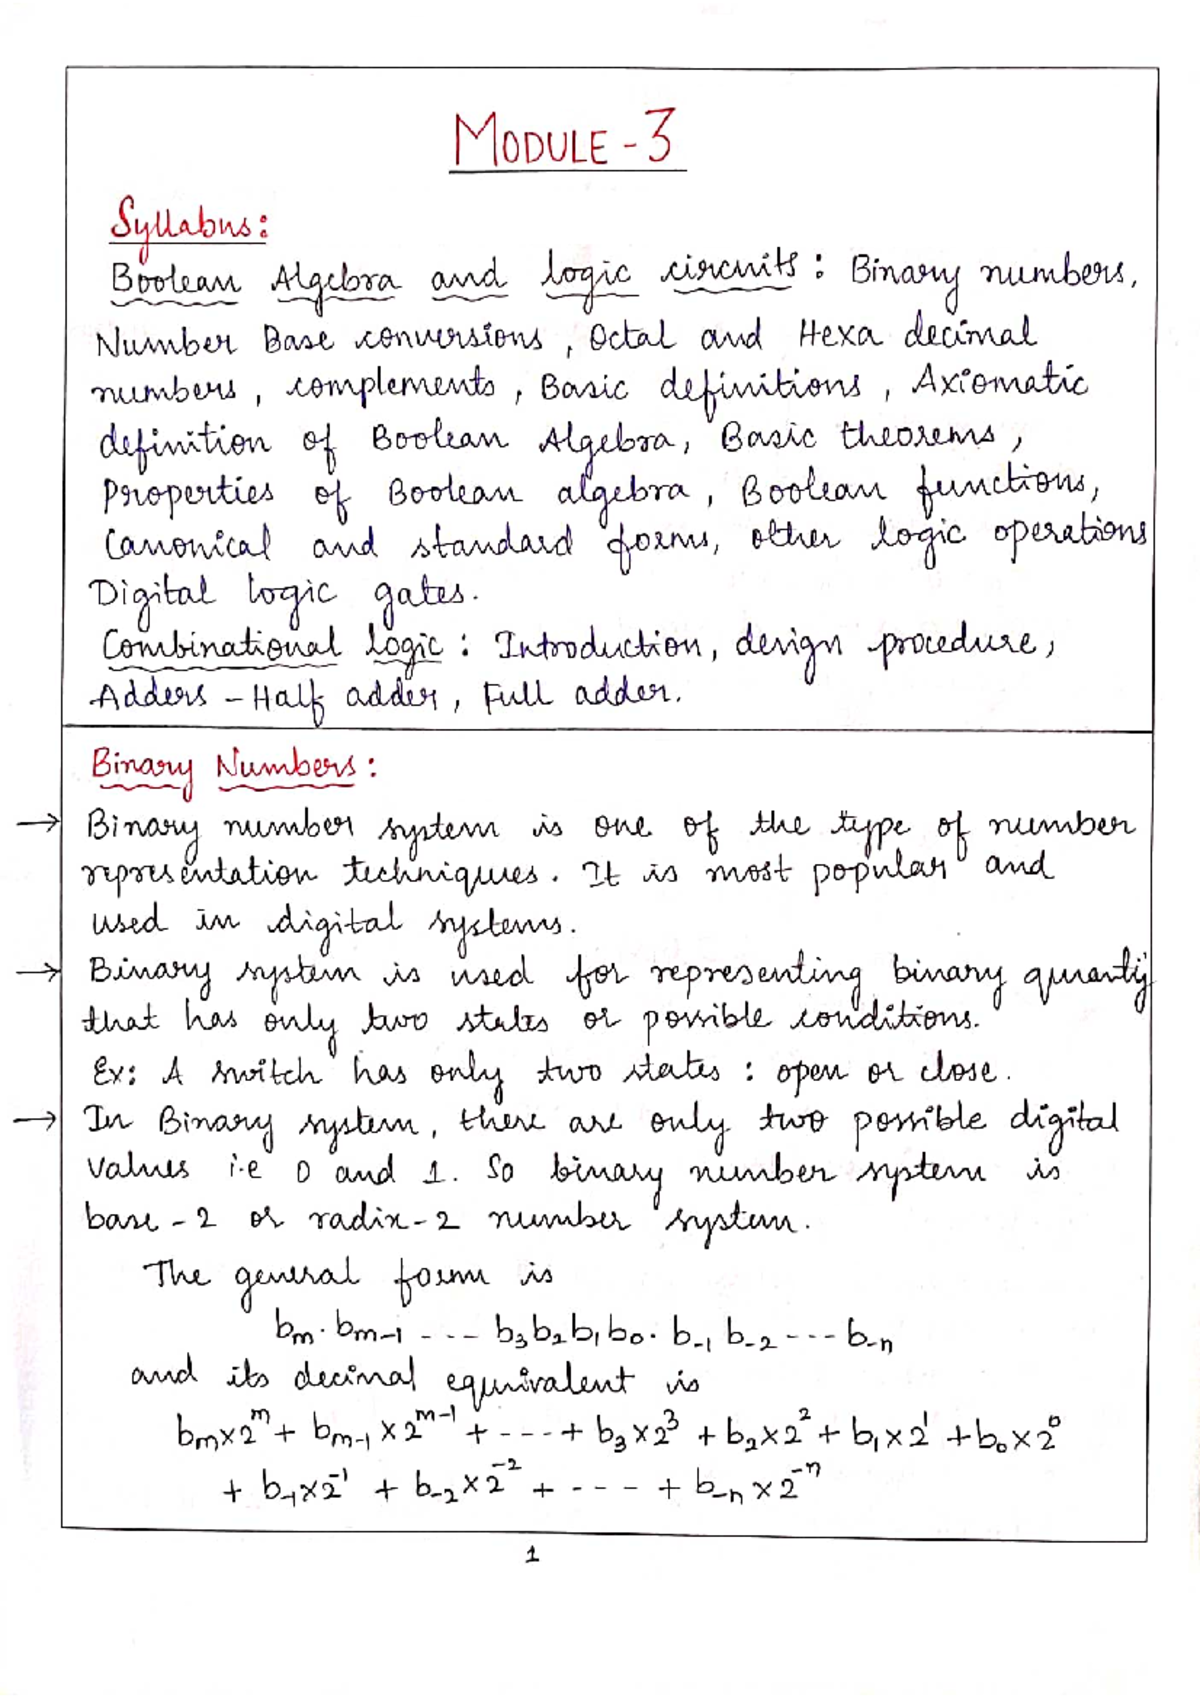 MODULE - 3
Syllabus:
Boolean Algebra and logic circuits: Binary numbers,
Number Base conversions, Octal and Hexa decimal
numbers, complements, Basic definitions, Axiomatic
definition of Boolean Algebra, Basic theorems,
Properties of Boolean algebra, Boolean functions,
Canonical and standard forms, other logic operations
Digital logic gates.
Combinational logic: Introduction, design procedure,
Adders - Half adder, Full adder.
Binary Numbers:
→ Binary number system is one of the type of number
representation techniques. It is most popular and
used in digital systems.
→ Binary system is used for representing binary quantity
that has only two states or possible conditions.
Ex: A switch has only two states : open or close.
→ In Binary system, there are only two possible digital
values i.e 0 and 1. So binary number system is
base - 2 or radix - 2 number system.
The general form is
bₘ . bₘ₋₁ - - - - b₃b₂b₁b₀ . b₋₁ b₋₂ - - - b₋ₙ
and its decimal equivalent is
bₘ×2ᵐ + bₘ₋₁×2ᵐ⁻¹ + - - - + b₃×2³ + b₂×2² + b₁×2¹ + b₀×2⁰
+ b₋₁×2⁻¹ + b₋₂×2⁻² + - - - - + b₋ₙ×2⁻ⁿ
1